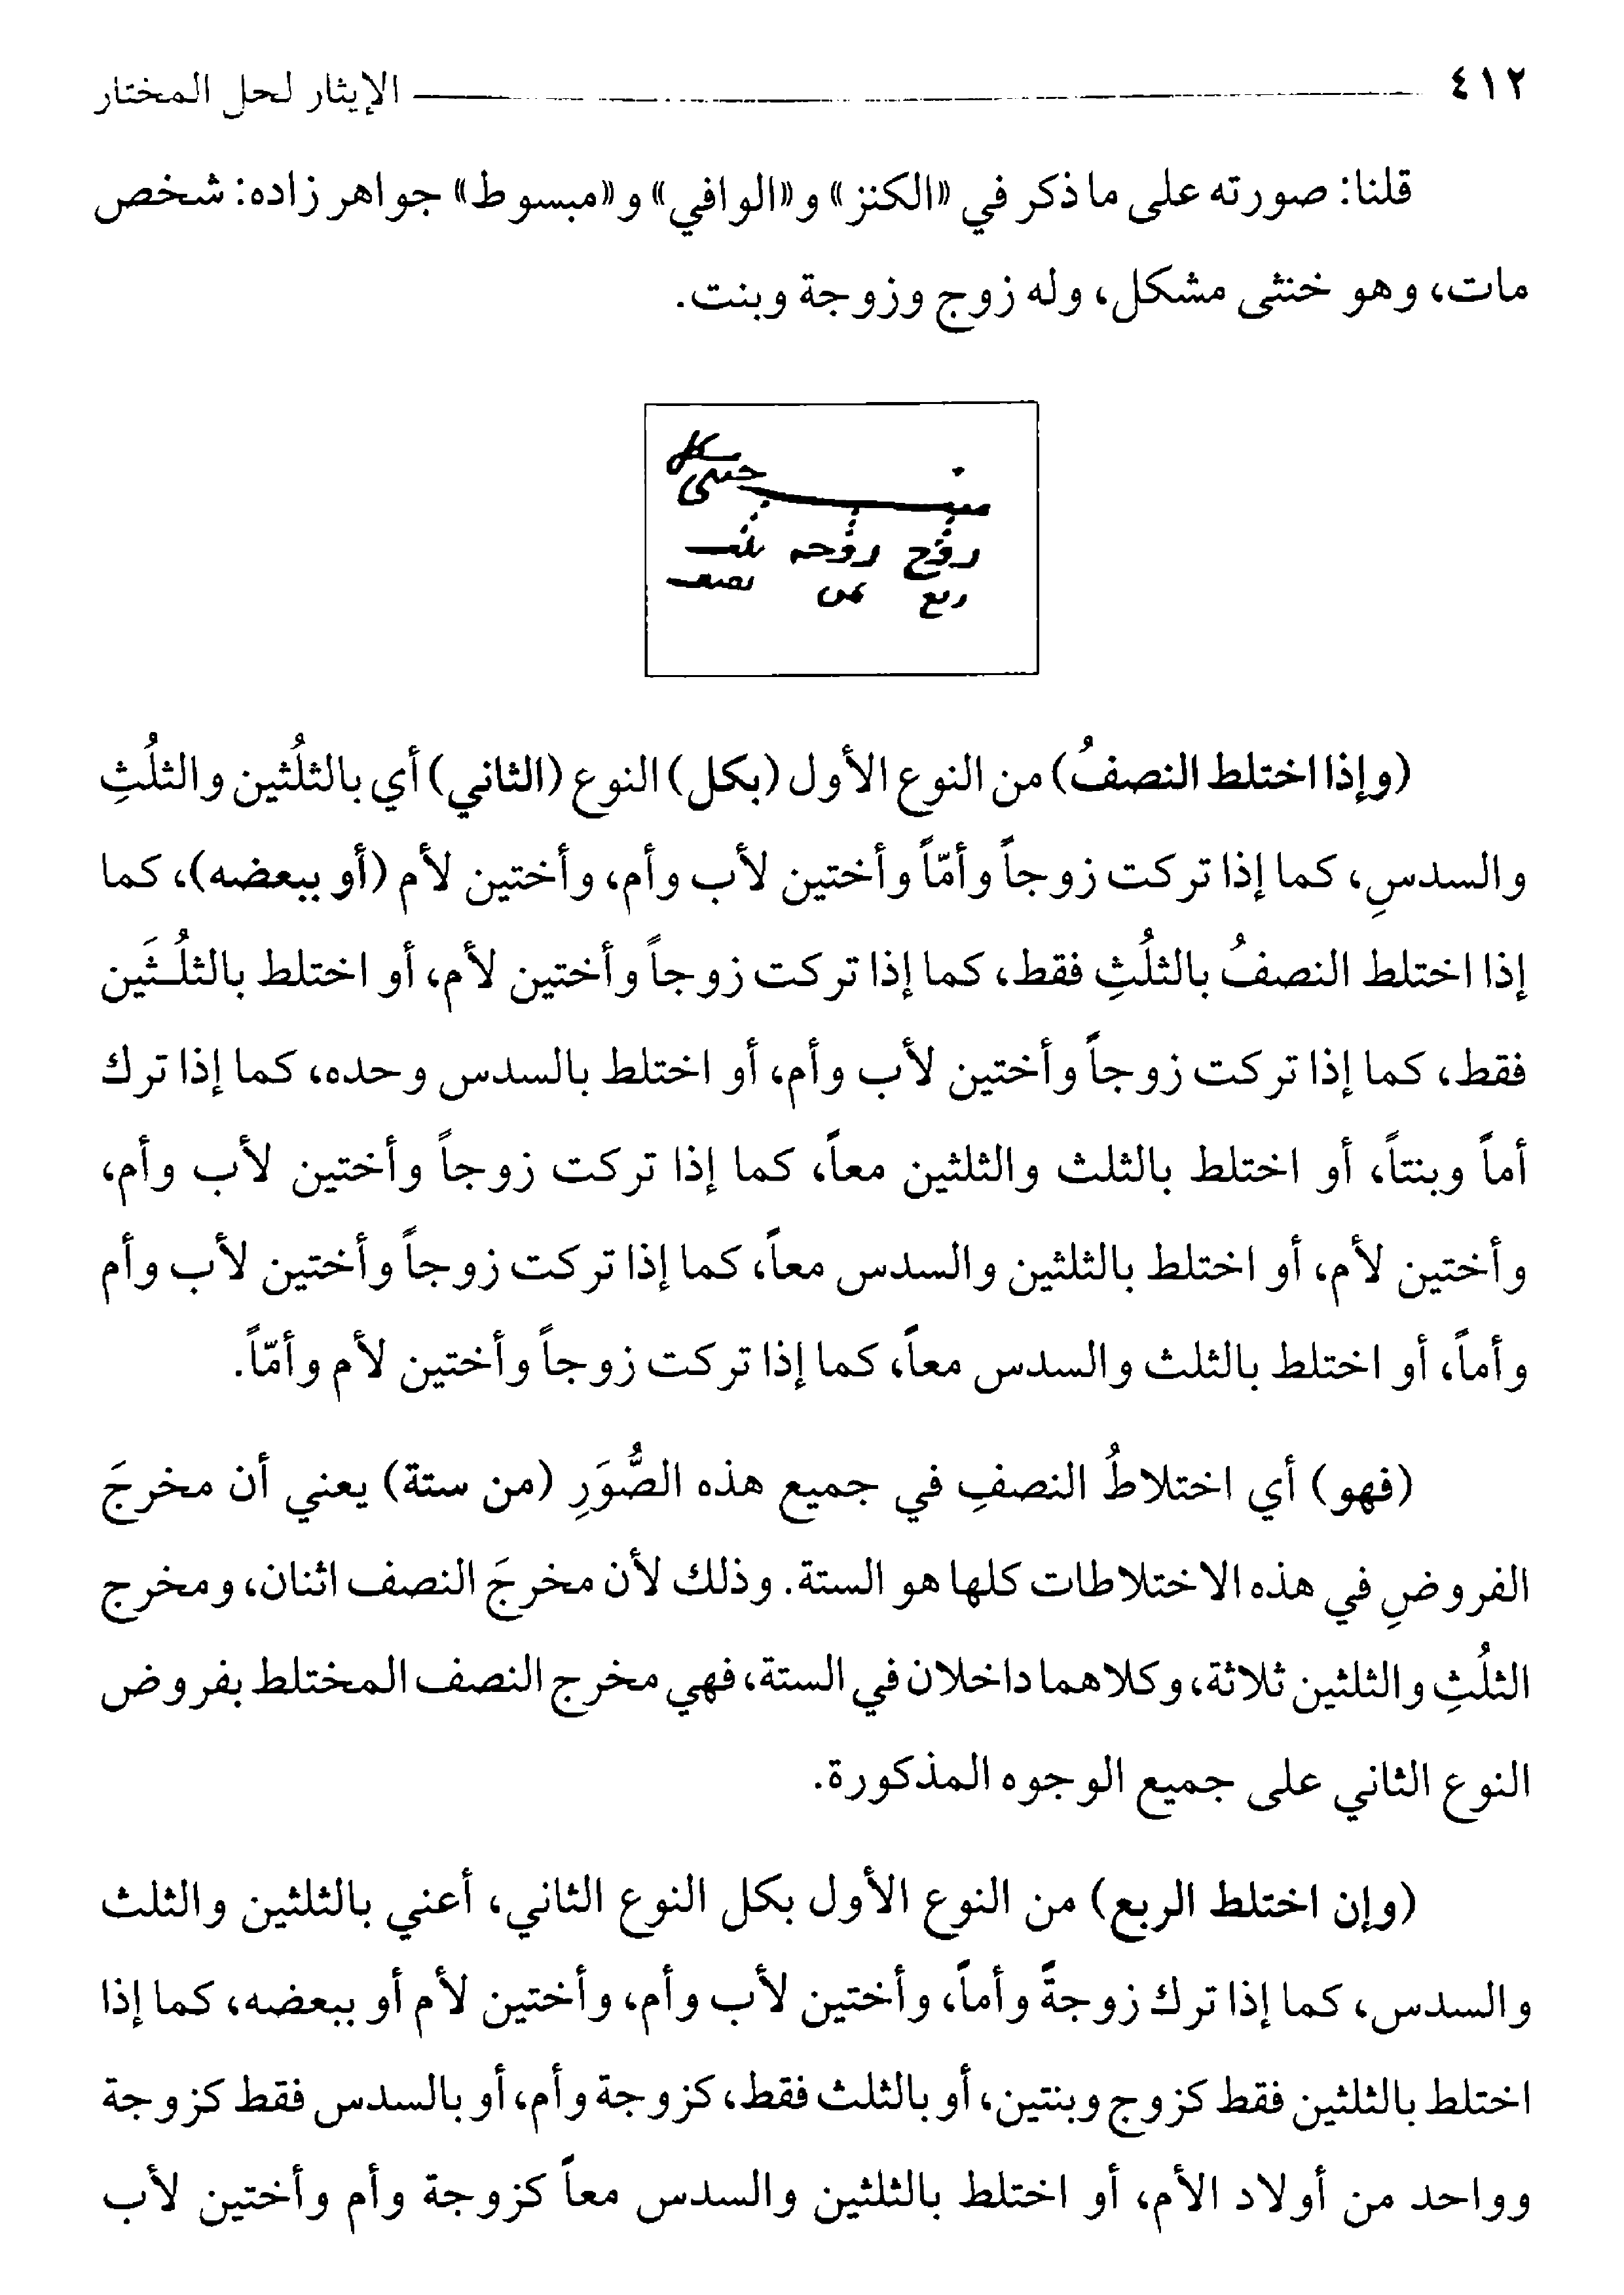 ٤١٢ الإيثار لحل المختار
قلنا: صورته على ما ذكر في «الكنز» و«الوافي» و«مبسوط» جواهر زاده: شخص
مات، وهو خنثى مشكل، وله زوج وزوجة وبنت.
خنثى
زوج زوجه بنت
ربع ثمن نصف
(وإذا اختلط النصفُ) من النوع الأول (بكل) النوع (الثاني) أي بالثلُثين والثلُثِ
والسدسِ، كما إذا تركت زوجاً وأمّاً وأختين لأب وأم، وأختين لأم (أو ببعضه)، كما
إذا اختلط النصفُ بالثلُثِ فقط، كما إذا تركت زوجاً وأختين لأم، أو اختلط بالثلُـثَين
فقط، كما إذا تركت زوجاً وأختين لأب وأم، أو اختلط بالسدس وحده، كما إذا ترك
أماً وبنتاً، أو اختلط بالثلث والثلثين معاً، كما إذا تركت زوجاً وأختين لأب وأم،
وأختين لأم، أو اختلط بالثلثين والسدس معاً، كما إذا تركت زوجاً وأختين لأب وأم
وأماً، أو اختلط بالثلث والسدس معاً، كما إذا تركت زوجاً وأختين لأم وأمّاً.
(فهو) أي اختلاطُ النصفِ في جميع هذه الصُّوَرِ (من ستة) يعني أن مخرجَ
الفروضِ في هذه الاختلاطات كلها هو الستة. وذلك لأن مخرجَ النصف اثنان، ومخرج
الثلُثِ والثلثين ثلاثة، وكلاهما داخلان في الستة، فهي مخرج النصف المختلط بفروض
النوع الثاني على جميع الوجوه المذكورة.
(وإن اختلط الربع) من النوع الأول بكل النوع الثاني، أعني بالثلثين والثلث
والسدس، كما إذا ترك زوجةً وأماً، وأختين لأب وأم، وأختين لأم أو ببعضه، كما إذا
اختلط بالثلثين فقط كزوج وبنتين، أو بالثلث فقط، كزوجة وأم، أو بالسدس فقط كزوجة
وواحد من أولاد الأم، أو اختلط بالثلثين والسدس معاً كزوجة وأم وأختين لأب